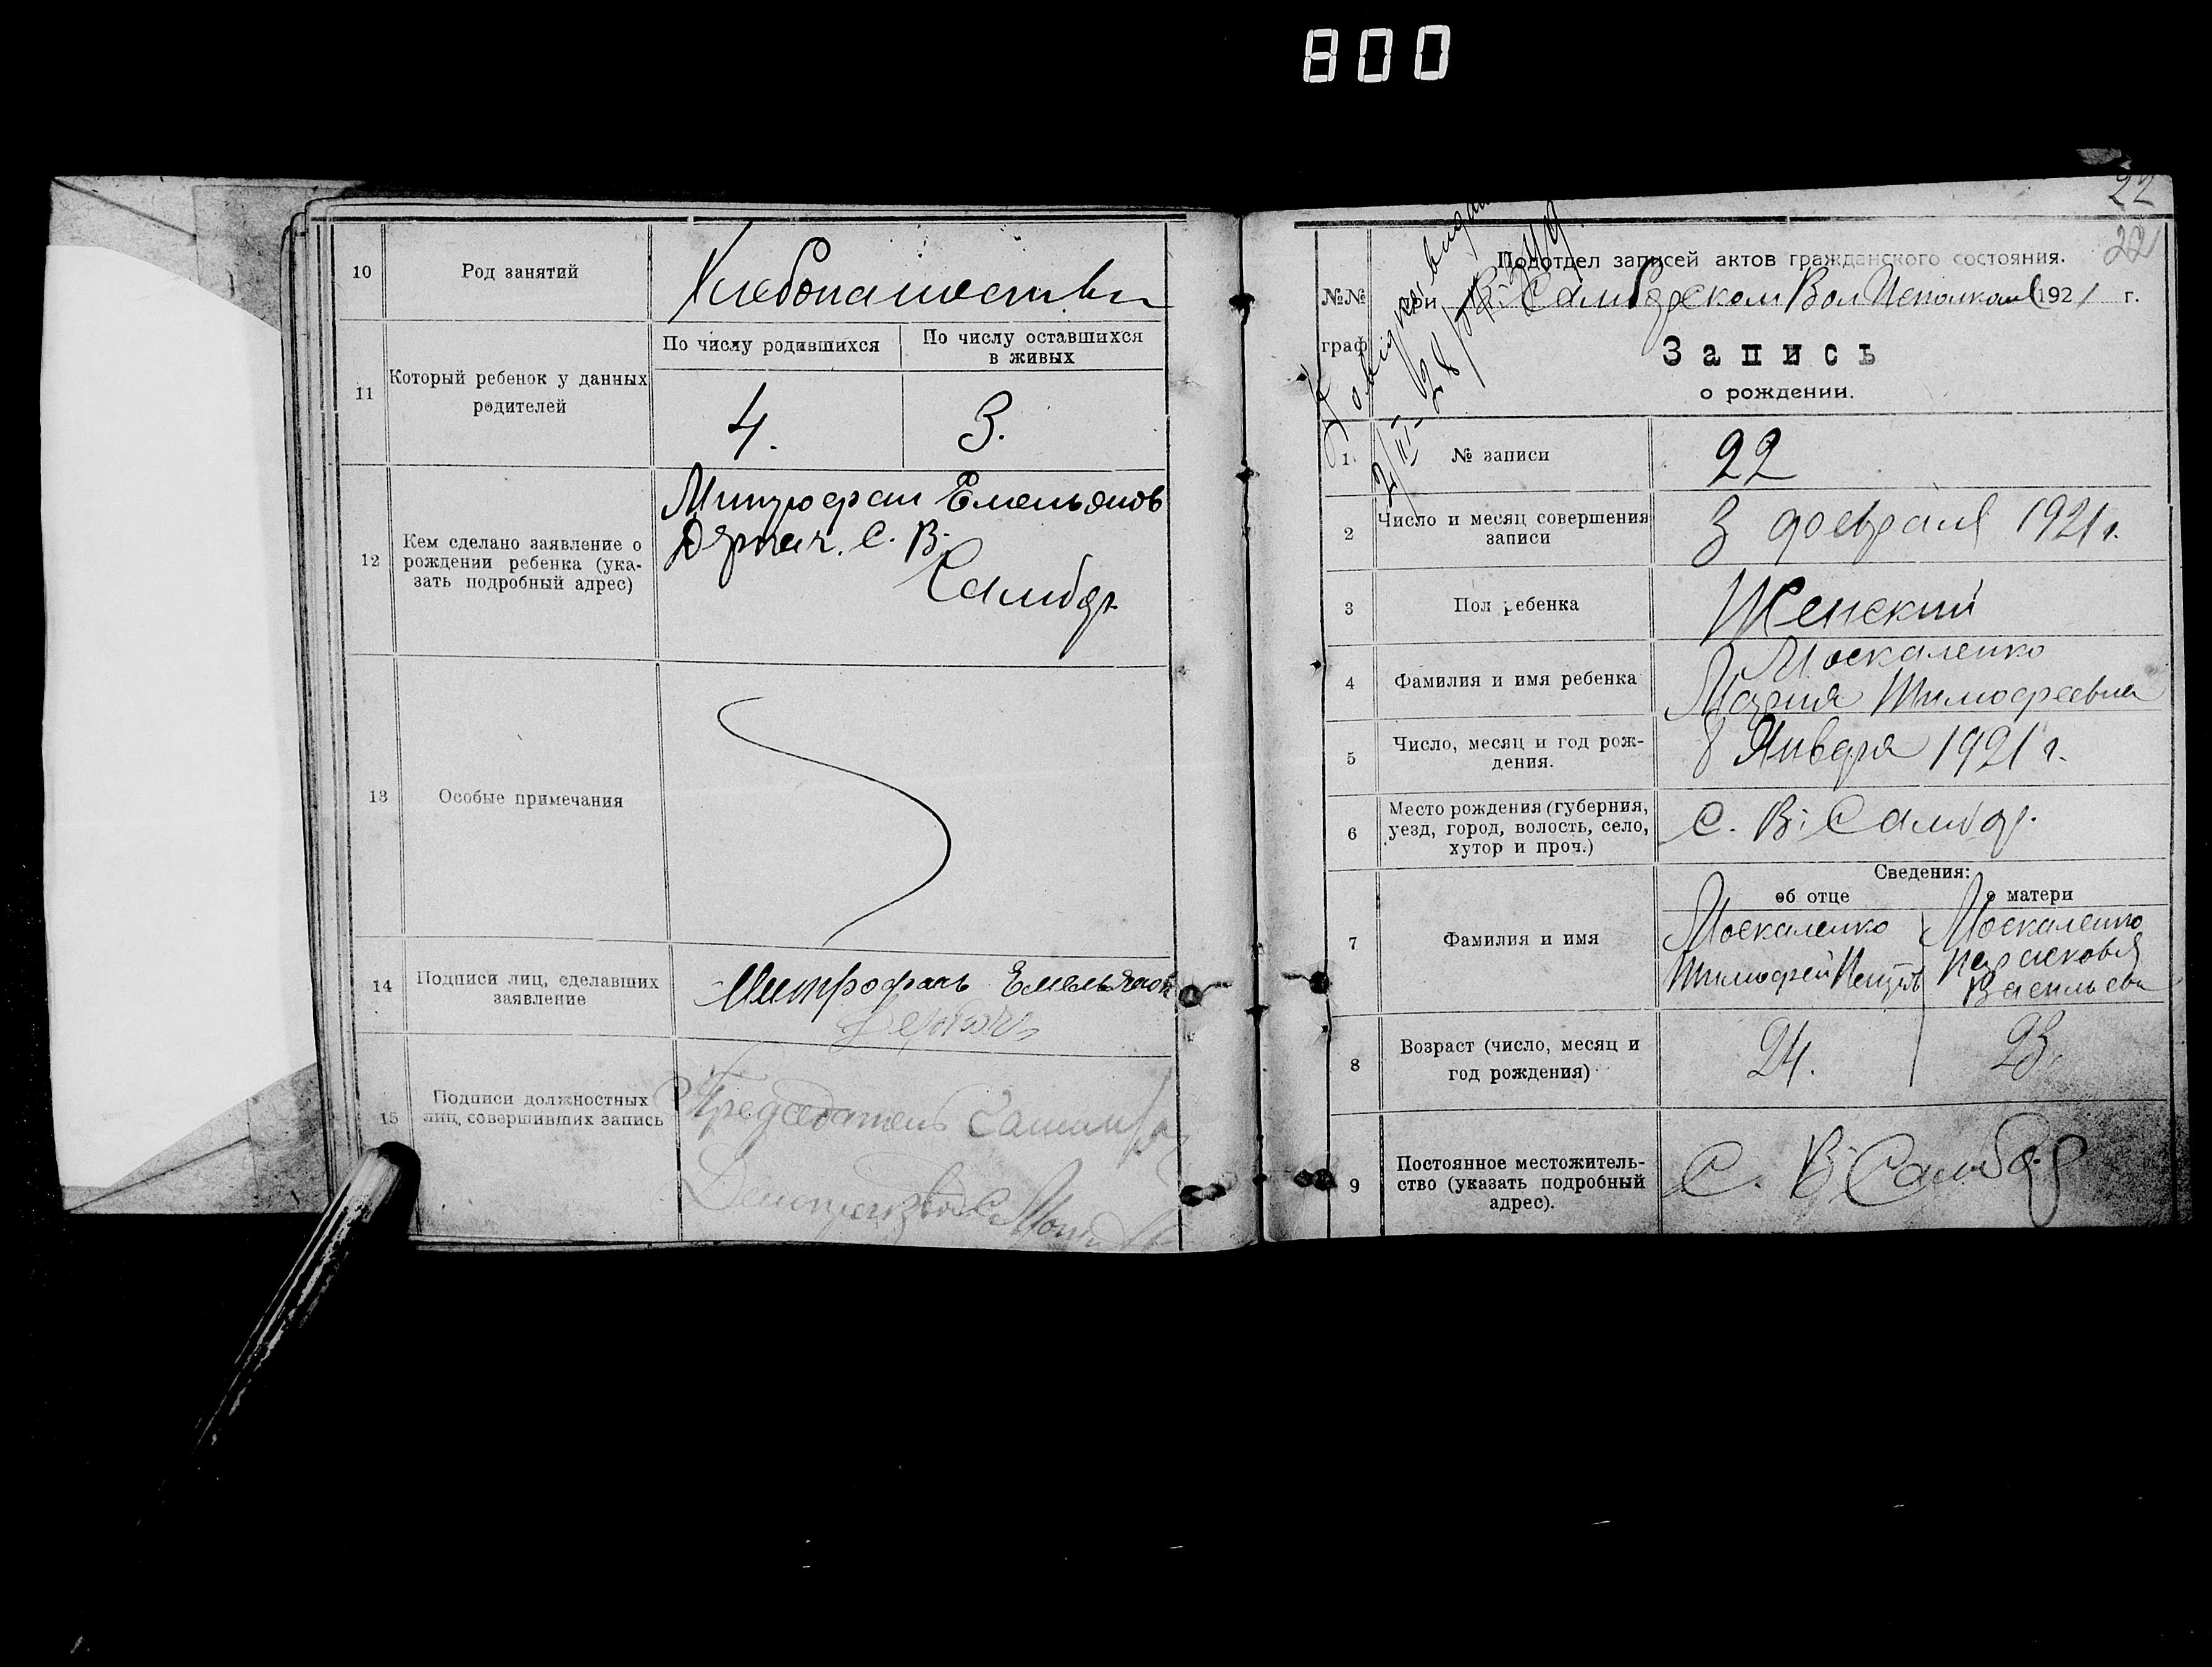 800
10
Род занятий
Хлебопашество
11
Который ребенок у данных
родителей
По числу родившихся
По числу оставшихся
в живых
4.
3.
12
Кем сделано заявление о
рождении ребенка (ука-
зать подробный адрес)
Митрофан Емельянов
Дяркач. С. В.
Самбор
13
Особые примечания
14
Подписи лиц, сделавших
заявление
Митрофанъ Емельянов
15
Подписи должностных
лиц, совершивших запись
Председатель
22
22
Подотдел записей актов гражданского состояния.
№№
граф
при В. Самборском Вол Исполком 1921 г.
Запись
о рождении.
1.
№ записи
22
2
Число и месяц совершения
записи
3 февраля 1921 г.
3
Пол ребенка
Женский
4
Фамилия и имя ребенка
Москаленко
Мария Тимофеевна
5
Число, месяц и год рож-
дения.
8 Января 1921 г.
6
Место рождения (губерния,
уезд, город, волость, село,
хутор и проч.)
С. В. Самбор.
Сведения:
об отце
о матери
7
Фамилия и имя
Москаленко
Тимофей
Москаленко
Парасковья
Васильевн
8
Возраст (число, месяц и
год рождения)
24.
23.
9
Постоянное местожитель-
ство (указать подробный
адрес).
С. В Самбор